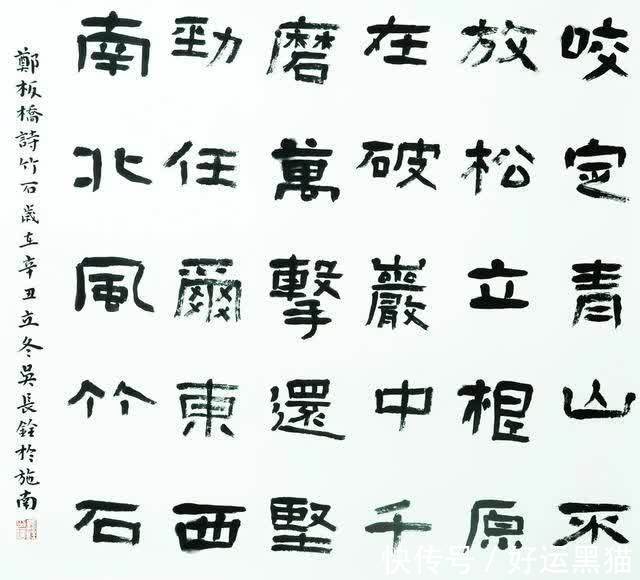 咬定青山不
放松立根原
在破巖中千
磨萬擊還堅
勁任爾東西
南北風竹石
鄭板橋詩竹石歲在辛丑立冬吳長銓於施南
快传号 / 好运黑猫